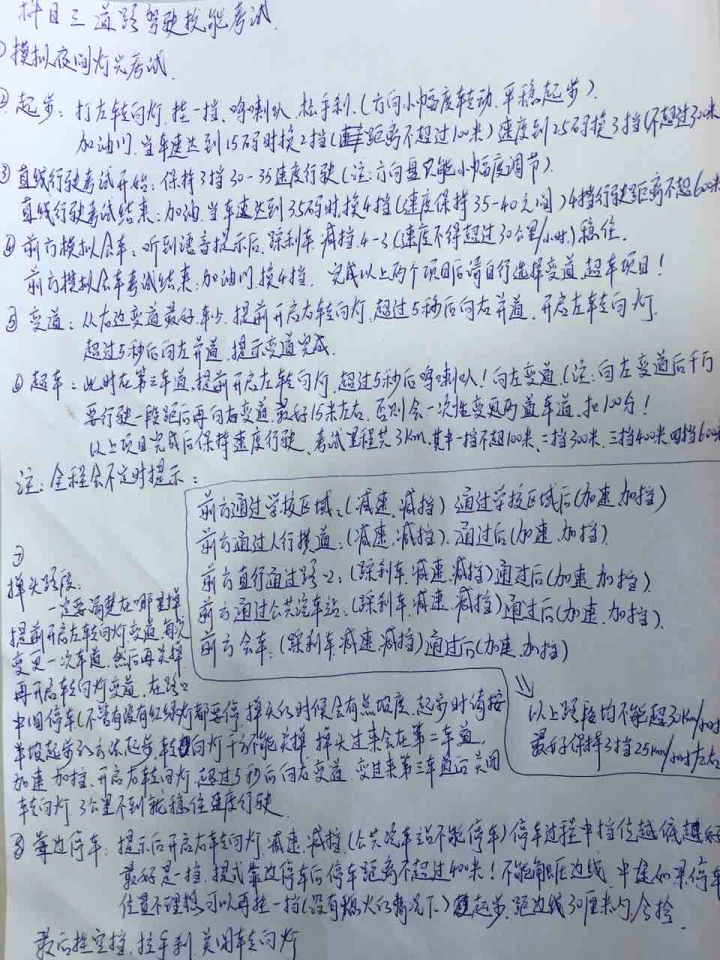 科目三道路驾驶技能考试
①模拟夜间灯光考试
②起步：打左转向灯.挂一挡.鸣喇叭.松手刹.(方向小幅度转动.平稳起步).
加油门.当车速达到15码时换2挡(距离不超过100米)速度到25码换3挡(不超过300米
③直线行驶考试开始：保持3挡30-35速度行驶(注：方向盘只能小幅度调节).
直线行驶考试结束：加油.当车速达到35码时.换4挡(速度保持35-40之间)4挡行驶距离不超600米
④前方模拟会车：听到语音提示后.踩刹车.减挡.4-3(速度不得超过30公里/小时)稳住.
前方模拟会车考试结束：加油门.换4挡. 完成以上两个项目后请自行选择变道.超车项目！
⑤变道：从右边变道最好.车少.提前开启右转向灯.超过5秒后向右并道.开启左转向灯.
超过5秒后向左并道.提示变道完成.
⑥超车：此时在第三车道.提前开启左转向灯.超过5秒后鸣喇叭！向左变道.(注：向左变道后千万
要行驶一段距后再向右变道.最好15米左右.否则会一次性变更两道车道.扣100分！
以上项目完成后保持速度行驶、考试里程共3Km.其中一挡不超100米.二挡300米.三挡400米.四挡600米
注：全程会不定时提示：
前方通过学校区域：(减速.减挡) 通过学校区域后(加速.加挡)
前方通过人行横道：(减速.减挡). 通过后(加速.加挡).
前方直行通过路口：(踩刹车.减速.减挡)通过后(加速.加挡).
前方通过公共汽车站：(踩刹车.减速.减挡)通过后(加速.加挡).
前方会车：(踩刹车.减速.减挡)通过后(加速.加挡)
以上路段均不能超30km/小时
最好保持3挡25km/小时左右
⑦
掉头路段：
一定要搞楚在哪里掉
提前开启左转向灯变道.每次
变更一次车道.然后再关掉
再开启转向灯变道.在路口
中间停车(不管有没有红绿灯都要停.掉头的时候会有点坡度.起步时请按
半坡起步的方法起步.转向灯千万不能关掉.掉头过来会在第二车道.
加速.加挡.开启右转向灯.超过5秒后向右变道.变进来第三车道后关闭
转向灯.3公里不到就稳住速度行驶.
⑧靠边停车：提示后开启右转向灯.减速.减挡(公共汽车站不能停车)停车过程中挡位越低越好
最好是一挡.提式靠边停车后停车距离不超过400米！不能触压边线.中途如果停车
位置不理想.可以再挂一挡(没有熄火的情况下)起步.距边线30厘米内.合格.
最后挂空挡.拉手刹.关闭转向灯